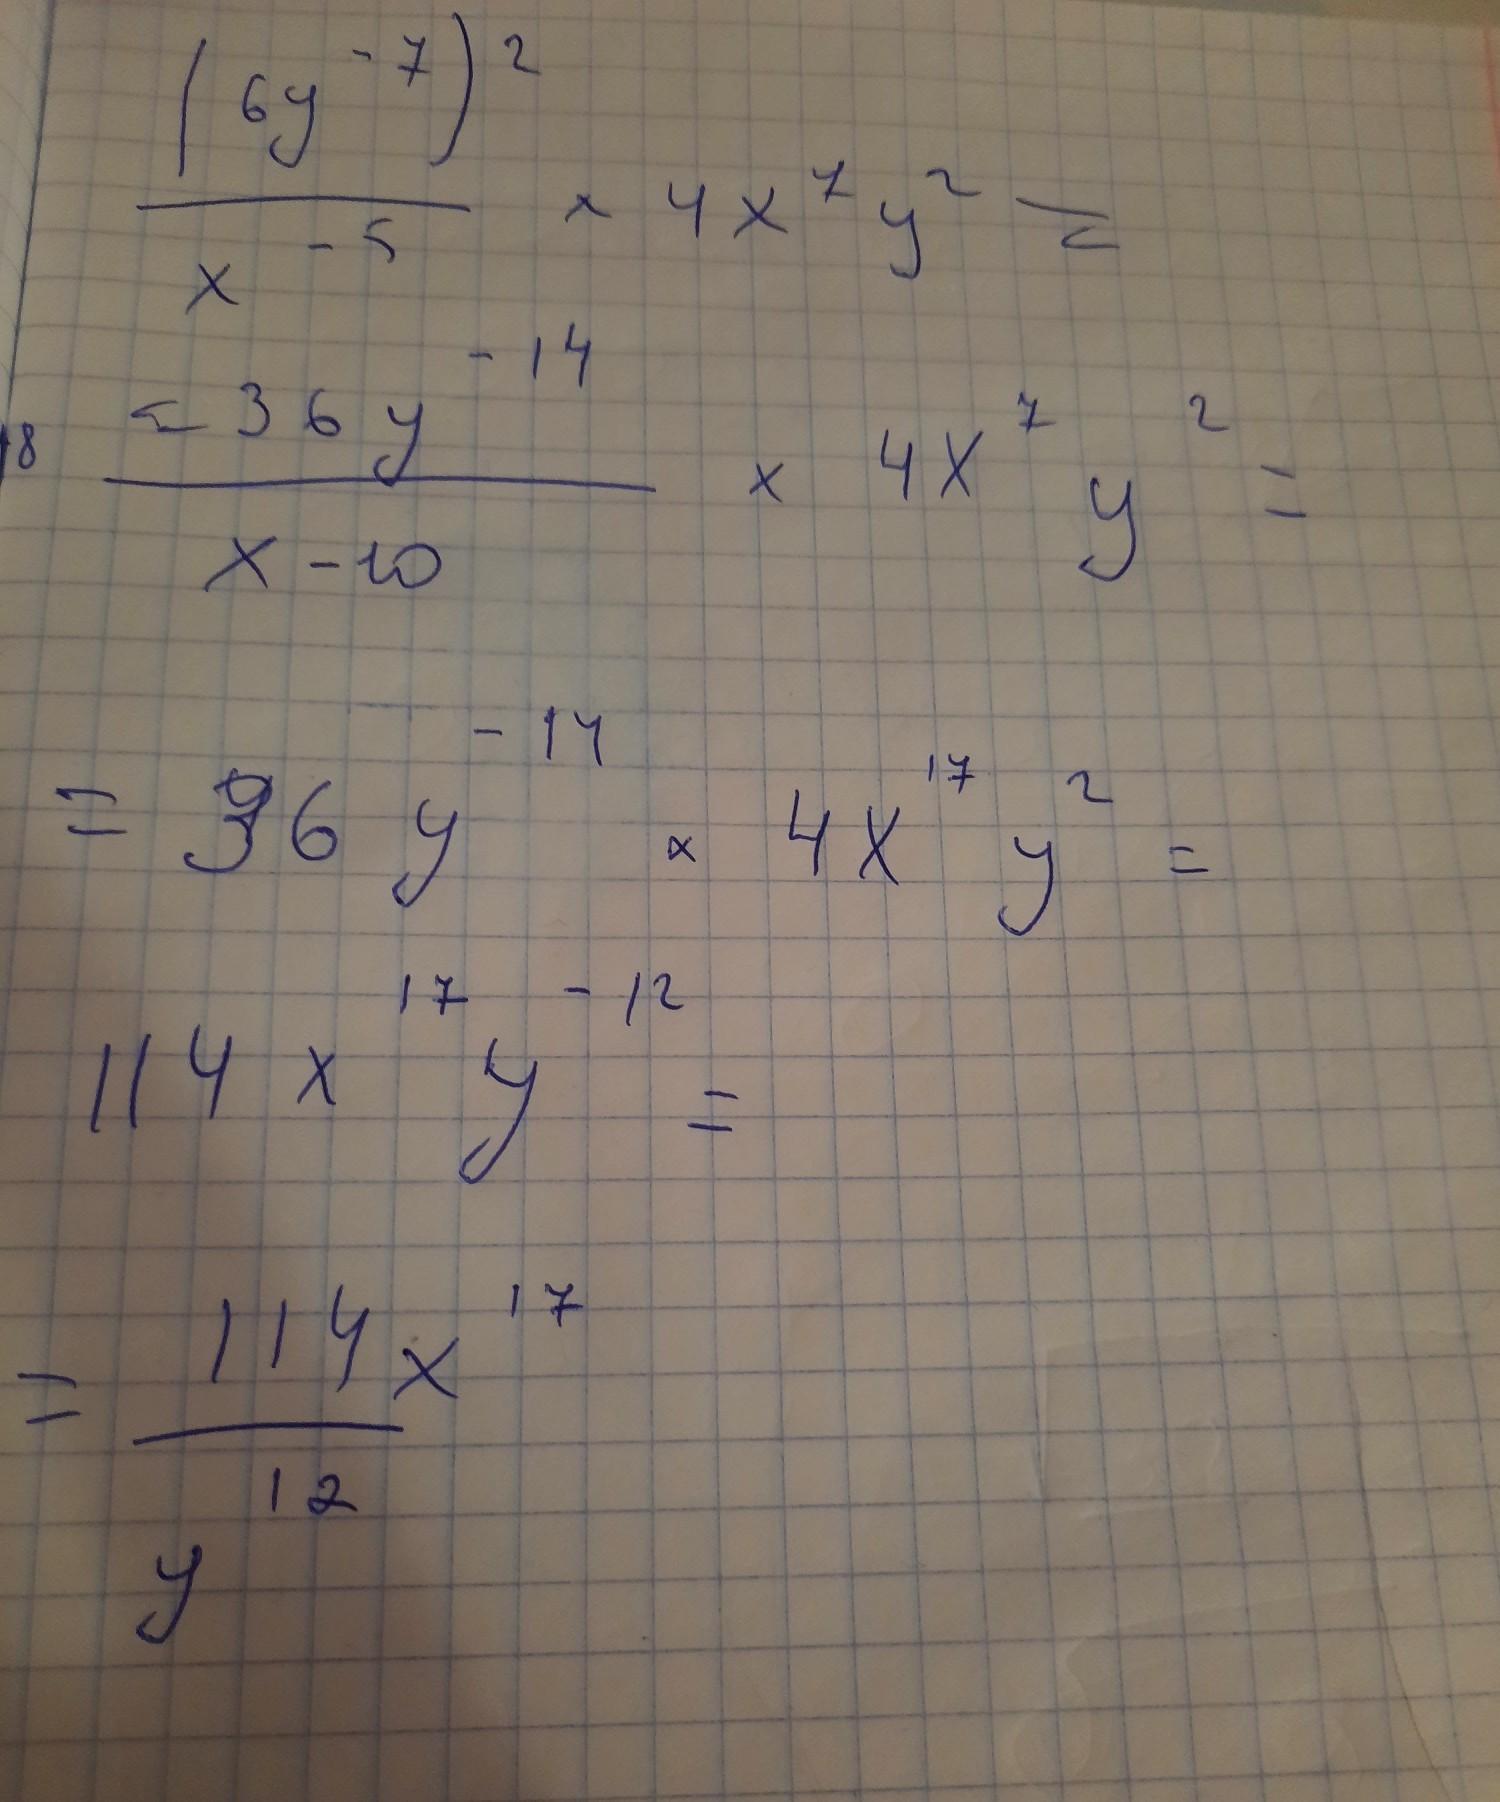 (6y⁻⁷)²
x⁻⁵ × 4x⁷y² =
= 36y⁻¹⁴
x -10 × 4x⁷y² =
= 36y⁻¹⁴ × 4x¹⁷y² =
114x¹⁷y⁻¹² =
= 114x¹⁷
y¹²